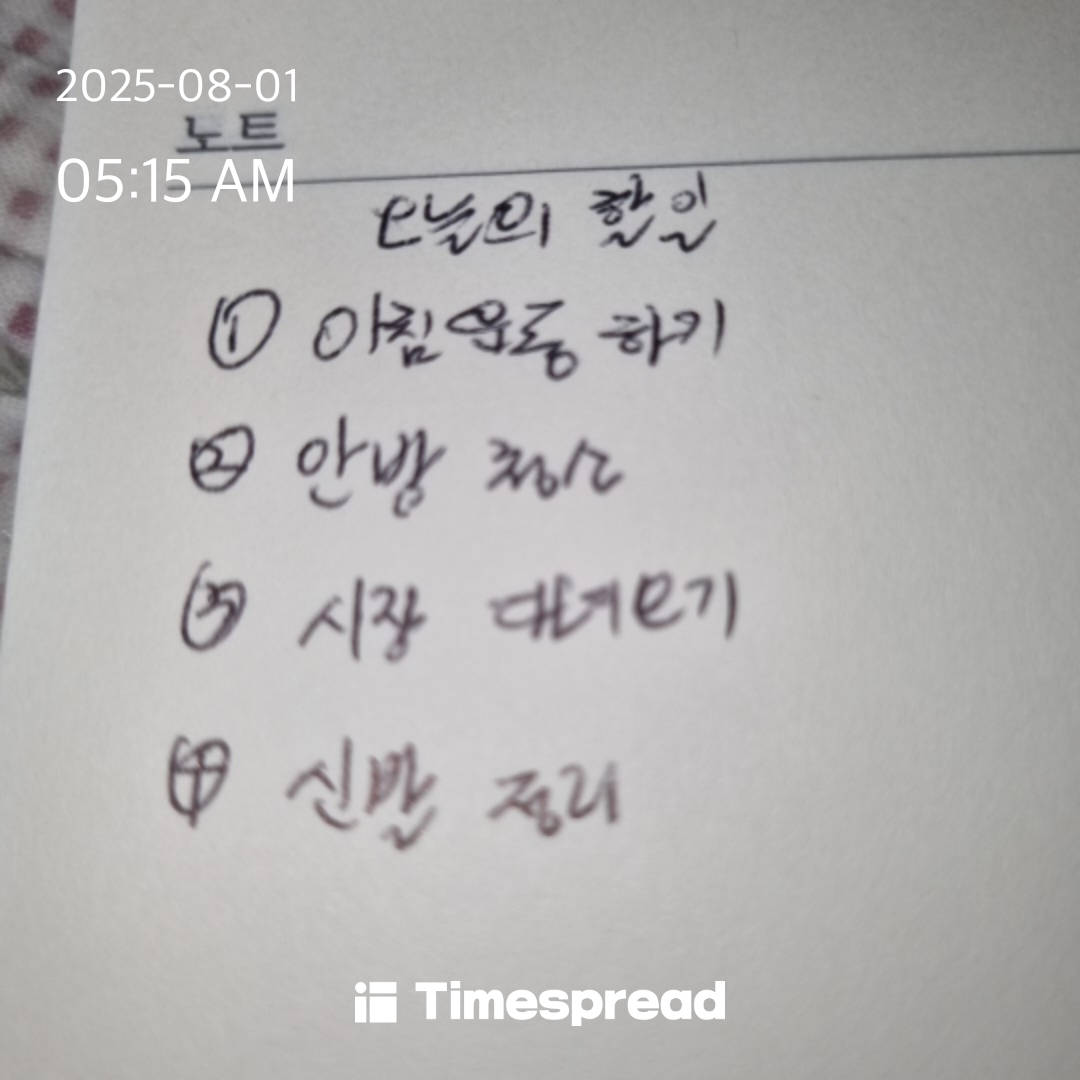 2025-08-01
노트
05:15 AM
오늘의 할일
① 아침운동 하기
② 안방 청소
③ 시장 다녀오기
④ 신발 정리
Timespread